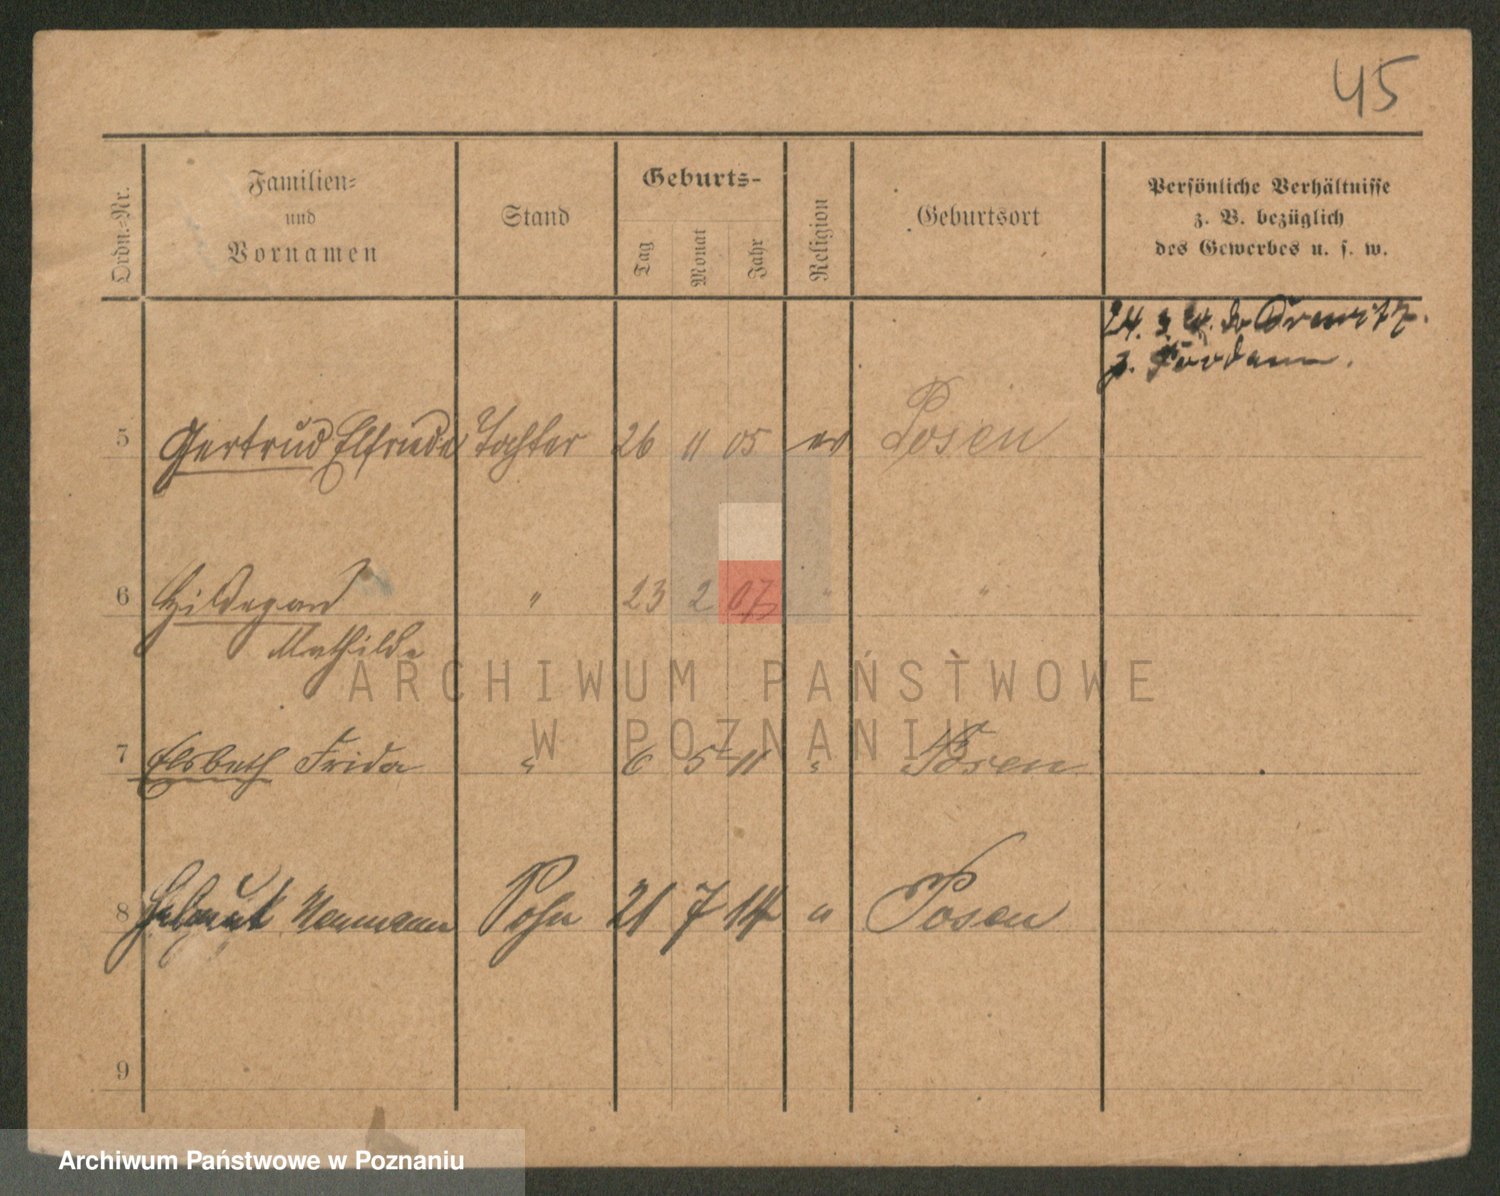 45
Ordn.-Nr.
Familien-
und
Vornamen
Stand
Geburts-
Tag
Monat
Jahr
Religion
Geburtsort
Persönliche Verhältnisse
z. B. bezüglich
des Gewerbes u. s. w.
24. 3.
z. Fordann.
5 Gertrud Elfriede Tochter 26 11 05 ev Posen
6 Hildegard " 23 2 07 " "
Mathilde
7 Elsbeth Frida " 6 5 11 " Posen
8 Helmut Sohn 21 7 14 " Posen
9
ARCHIWUM PAŃSTWOWE
W POZNANIU
Archiwum Państwowe w Poznaniu